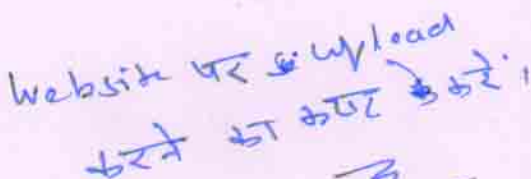 Website पर upload
करने का कष्ट करें।